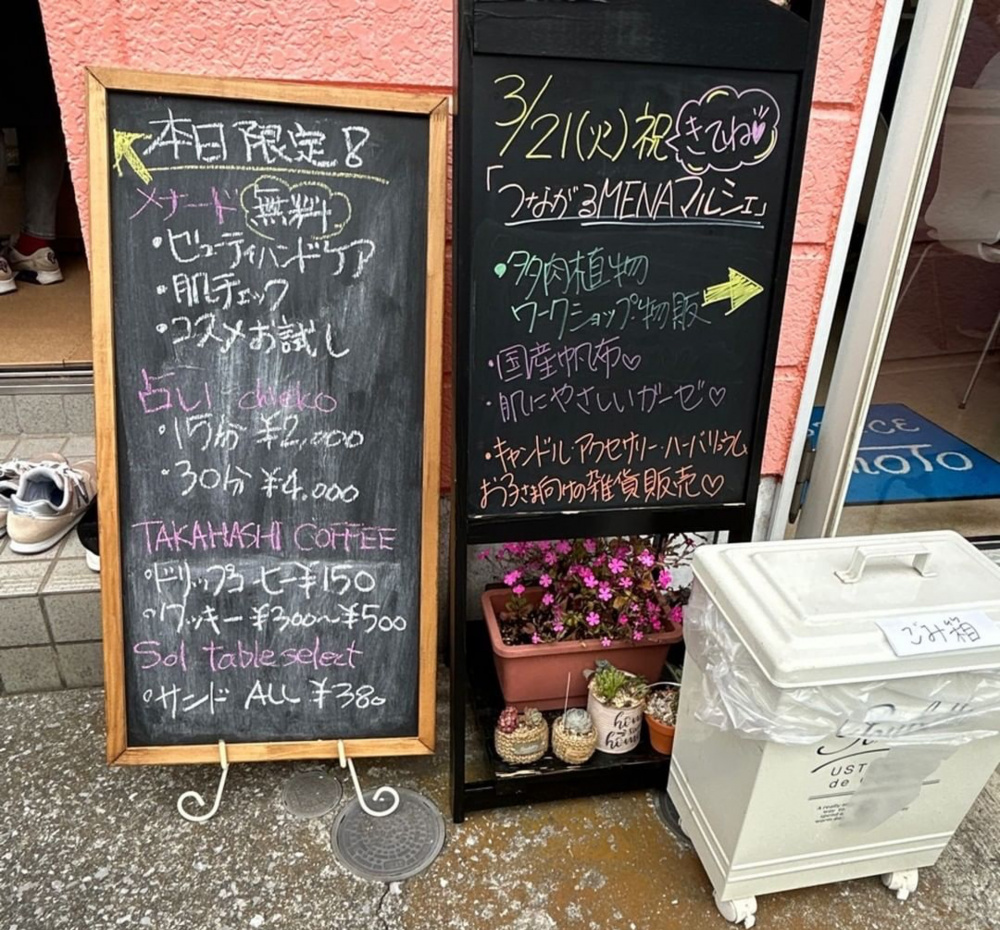 本日限定!
メナード 無料
・ビューティハンドケア
・肌チェック
・コスメお試し
占い chieko
・15分 ¥2,000
・30分 ¥4,000
TAKAHASHI COFFEE
・ドリップコーヒー ¥150
・クッキー ¥300〜¥500
Sol table select
・サンド ALL ¥380
3/21(火)祝 きてね
「つながるMENAマルシェ」
・多肉植物
ワークショップ・物販
・国産帆布♡
・肌にやさしいガーゼ♡
・キャンドル・アクセサリー・ハーバリウム
お子さま向けの雑貨販売♡
ごみ箱
home
home